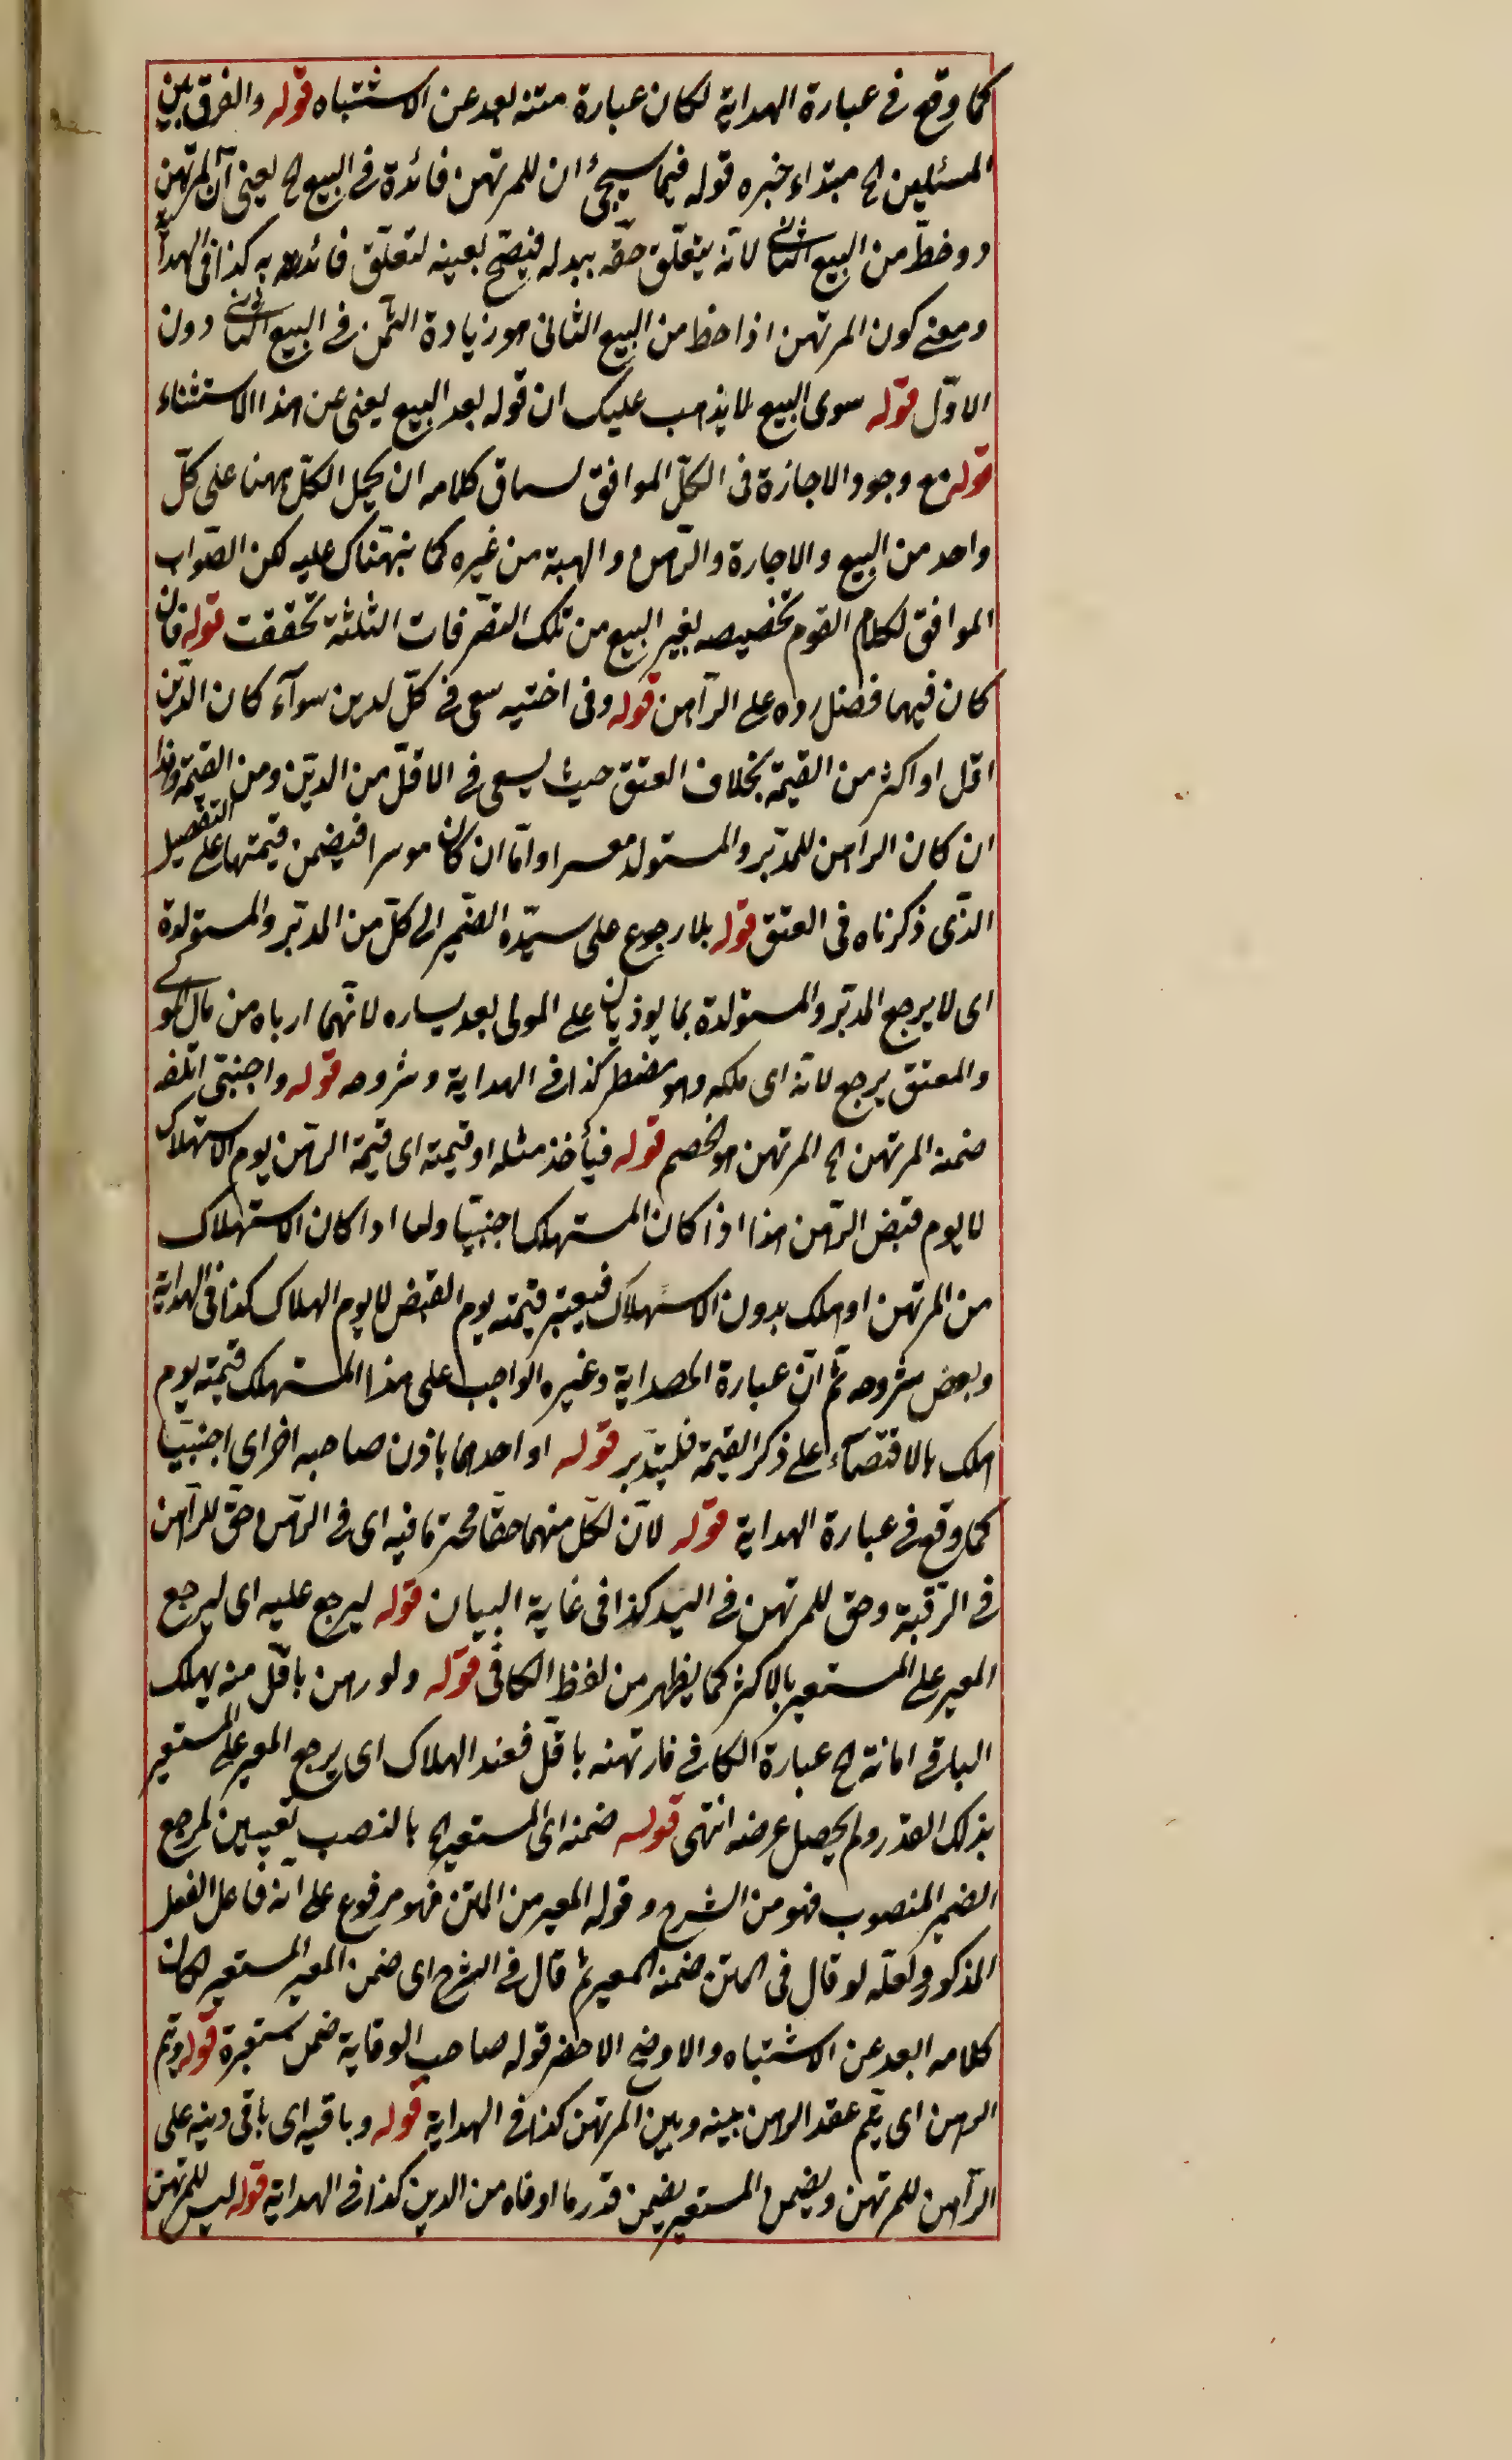 كما وقع في عبارة الهداية لكان عبارة متنه ابعد عن الاشتباه قوله والفرق بين
المسئلين الخ مبتداء خبره قوله فيما سيجئ ان للمرتهن فائدة في البيع الخ يعني ان المرتهن
ذو حظ من البيع الثاني لانه يتعلق حقه ببدله فيصح بعينه لتعلق فائدته به كذا في الهداية
ومعنى كون المرتهن اذا حظ من البيع الثاني هو زيادة الثمن في البيع الثاني دون
الاول قوله سوى البيع لا يذهب عليك ان قوله بعد البيع يغني عن هذا الاستثناء
قوله مع وجود الاجازة في الكل الموافق لسياق كلامه ان يحمل الكل ههنا على كل
واحد من البيع والاجارة والرهن والهبة من غيره كما نبهناك عليه لكن الصواب
الموافق لكلام القوم تخصيصه بغير البيع من تلك التصرفات الثلثة تحققت قوله فان
كان فيهما فضل رده على الراهن قوله وفى اختيه سعى في كل لدين سواء كان الدين
اقل او اكثر من القيمة بخلاف العتق حيث يسعى في الاقل من الدين ومن القيمة وهذا
ان كان الراهن للمدبر والمستولد معسرا واما ان كان موسرا فيضمن قيمتها على التفصيل
الذى ذكرناه في العتق قوله بلا رجوع على سيده الضمير الى كل من المدبر والمستولدة
اى لا يرجع المدبر والمستولدة بما يوذيان على المولى بعد يساره لانهما ادياه من مال المولى
والمعتق يرجع لانه ادى ملكه وهو مضطر كذا في الهداية وشروحه قوله واجنبى اتلفه
ضمنه المرتهن الخ المرتهن هو الخصم قوله فيأخذ مثله او قيمته اى قيمة الرهن يوم الاستهلاك
لا يوم قبض الرهن هذا اذا كان المستهلك اجنبيا واما اذا كان الاستهلاك
من المرتهن او هلك بدون الاستهلاك فيعتبر قيمته يوم القبض لا يوم الهلاك كذا في الهداية
وبعض شروحه ثم ان عبارة الهداية وغيره الواجب على هذا المستهلك قيمته يوم
هلك بالاقتصاء على ذكر القيمة فليتدبر قوله او احدهما باذن صاحبه اخر اى اجنبيا
كما وقع في عبارة الهداية قوله لان لكل منهما حقا محترما فيه اى في الرهن حق للراهن
في الرقبة وحق للمرتهن في اليد كذا في غاية البيان قوله ليرجع عليه اى ليرجع
المعير على المستعير بالاكثر كما يظهر من لفظ الكافى قوله ولو رهن باقل منه يهلك
الباقي امانة الخ عبارة الكافي فارتهنه باقل فعند الهلاك اى يرجع المعير على المستعير
بذلك القدر ولم يحصل غرضه انتهى قوله ضمنه اى المستعير الخ بالنصب تعيين لمرجع
الضمير المنصوب فهو من الشرح وقوله المعير من المتن فهو مرفوع على انه فاعل الفعل
المذكور ولعله لو قال في المتن ضمنه المعير ثم قال في الشرح اى ضمن المعير المستعير لكان
كلامه ابعد عن الاشتباه والاوضح الاخصر قوله صاحب الوقاية ضمن مستعيره قوله وتم
الرهن اى يتم عقد الرهن بينه وبين المرتهن كذا في الهداية قوله وباقيه اى باقى دينه على
الراهن للمرتهن ويضمن المستعير يضمن قدر ما اوفاه من الدين كذا في الهداية قوله ليس للمرتهن